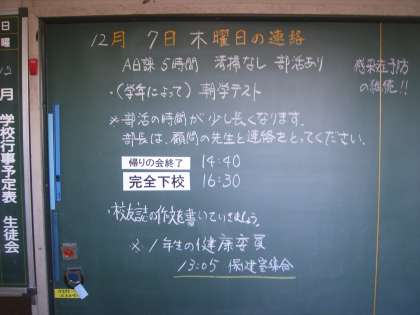 12月 7日 木曜日の連絡
A日課 5時間 清掃なし 部活あり
・(学年によって) 朝学テスト
※部活の時間が少し長くなります。
部長は、顧問の先生と連絡をとってください。
帰りの会終了 14:40
完全下校 16:30
・校友誌の作文を書いていきましょう。
※1年生の健康委員
13:05 保健室集合
感染症予防
の徹底!!
日
曜
12
月
学校行事予定表 生徒会